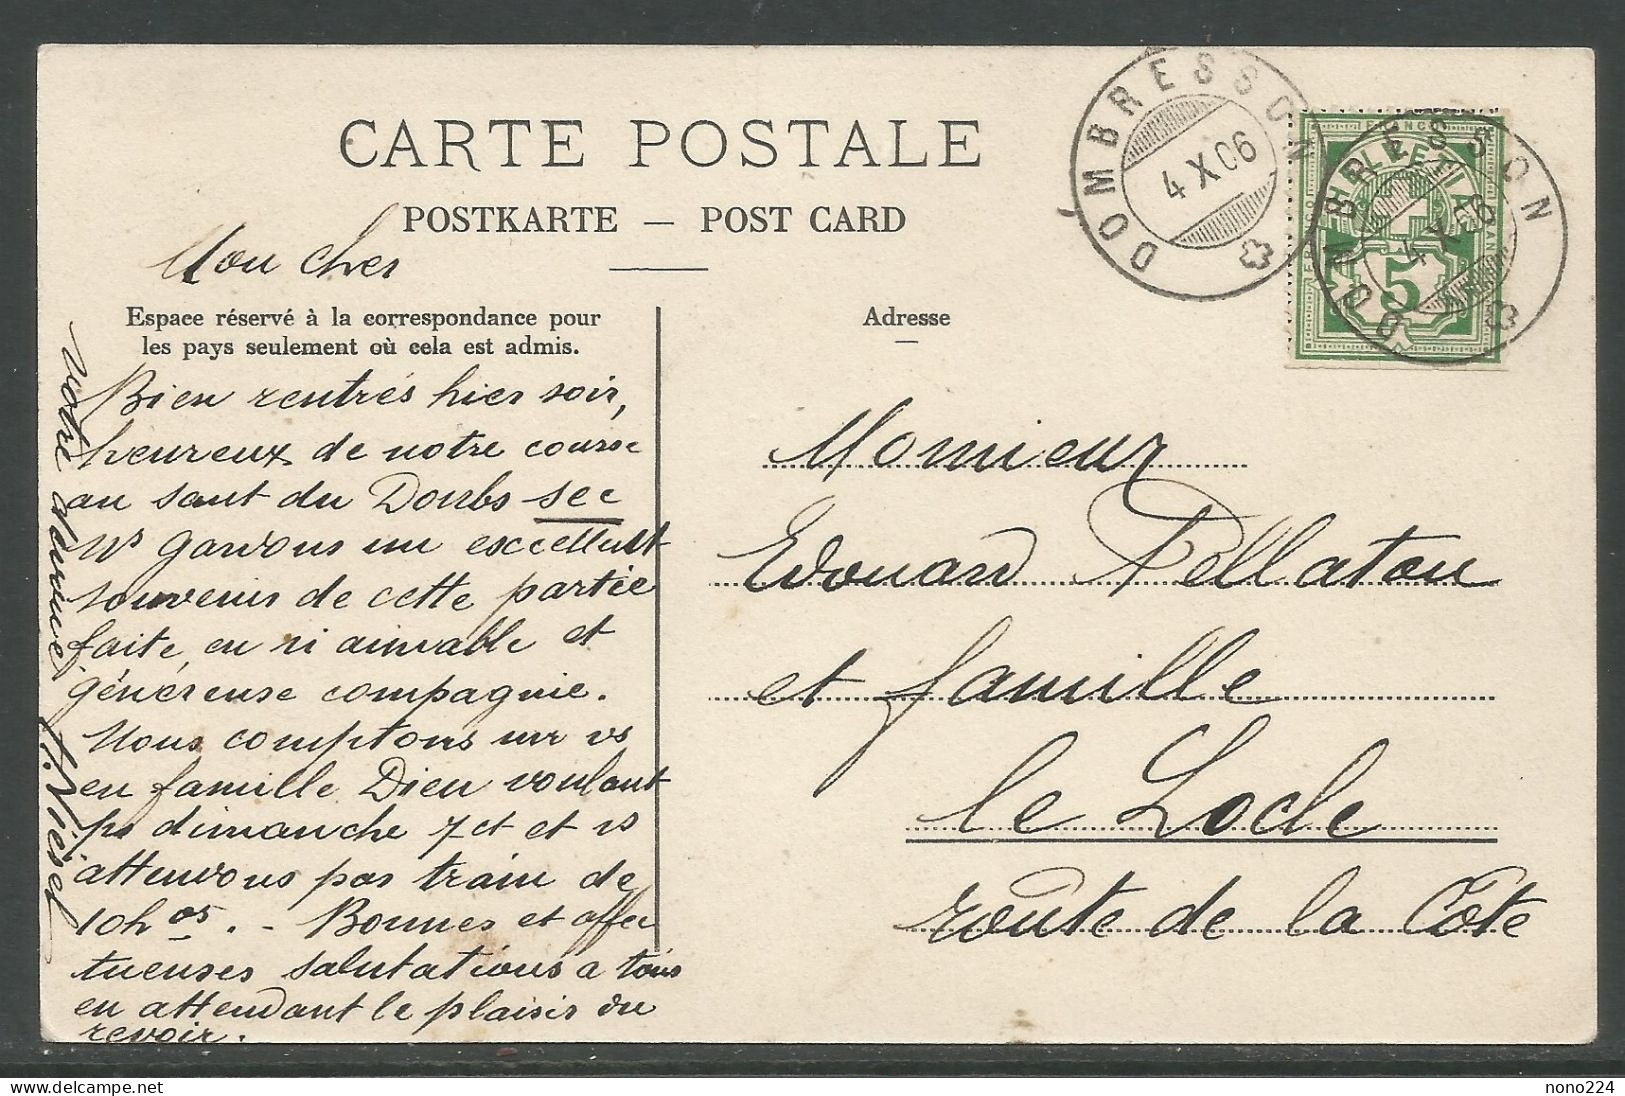 CARTE POSTALE
POSTKARTE — POST CARD
Mon cher
Espace réservé à la correspondance pour
les pays seulement où cela est admis.
Adresse
DOMBRESSON
4 X 06
DOMBRESSON
4 X 06
HELVETIA
FRANCO
5
Bien rentrés hier soir,
heureux de notre course
au saut du Doubs sec
Ns gardons un excellent
souvenir de cette partie
faite en si aimable et
généreuse compagnie.
Nous comptons sur vs
en famille Dieu voulant
pr dimanche 7 ct et vs
attendons pas train de
10h 05. - Bonnes et affec
tueuses salutations a tous
en attendant le plaisir du
revoir.
votre dévoué
Monsieur
Edouard Pellaton
et famille
le Locle
route de la Côte
nono224